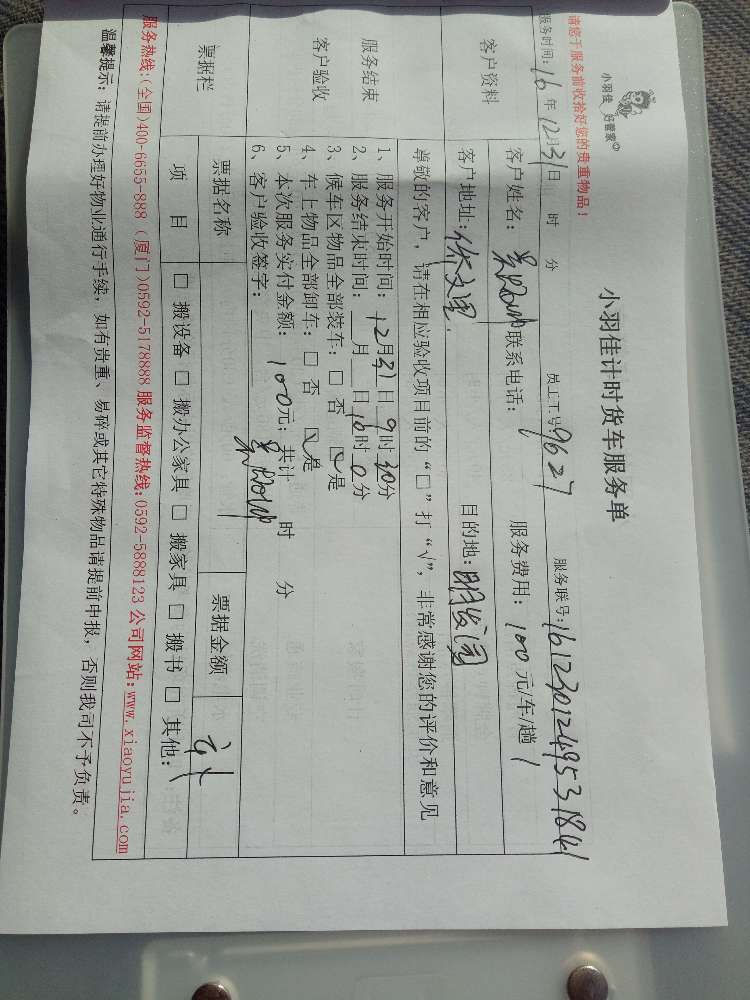 小羽佳 好管家
小羽佳计时货车服务单
请您于服务前收拾好您的贵重物品！
服务时间：16年12月31日 时 分 员工工号：9627 服务联号：161230124953184
客户资料
客户姓名： 联系电话： 服务费用：100元/车/趟
客户地址： 目的地：明发园
服务结束
客户验收
尊敬的客户，请在相应验收项目前的“□”打“√”，非常感谢您的评价和意见
1、服务开始时间：12月31日9时30分
2、服务结束时间： 月 日10时0分
3、候车区物品全部装车：□ 否 ☑是
4、车上物品全部卸车：□ 否 ☑是
5、本次服务实付金额：100元；共计 时 分
6、客户验收签字：
票据栏
票据名称 票据金额
项 目 □ 搬设备 □ 搬办公家具 □ 搬家具 □ 搬书 □ 其他：
服务热线：(全国)400-6655-888 (厦门)0592-5178888 服务监督热线：0592-5888123 公司网站：www.xiaoyujia.com
温馨提示：请提前办理好物业通行手续，如有贵重、易碎或其它特殊物品请提前申报，否则我司不予负责。